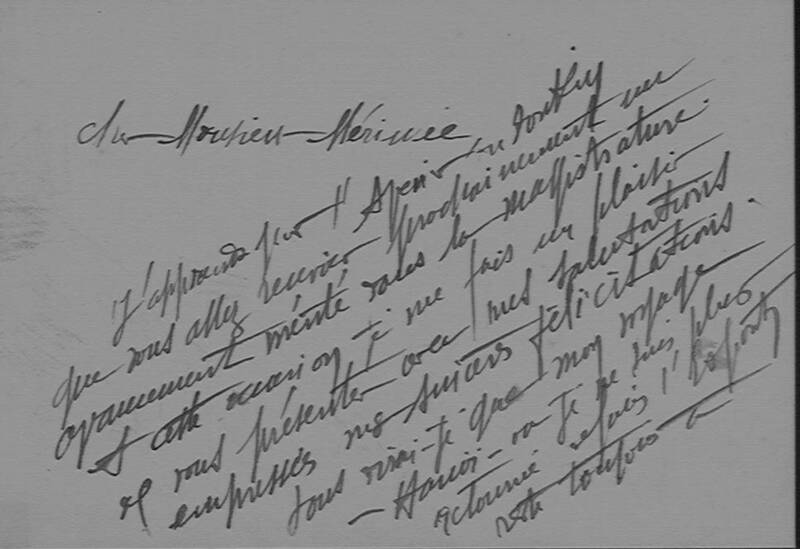 Cher Monsieur Mérimée
J'apprends par l'Asie du Tonkin
que vous allez recevoir prochainement un
avancement mérité dans la magistrature.
A cette occasion je me fais un plaisir
de vous présenter avec mes salutations
empressées mes sincères félicitations.
Vous dirai-je que mon voyage
- Hanoi - où je ne suis plus
retourné depuis l'
reste toujours à